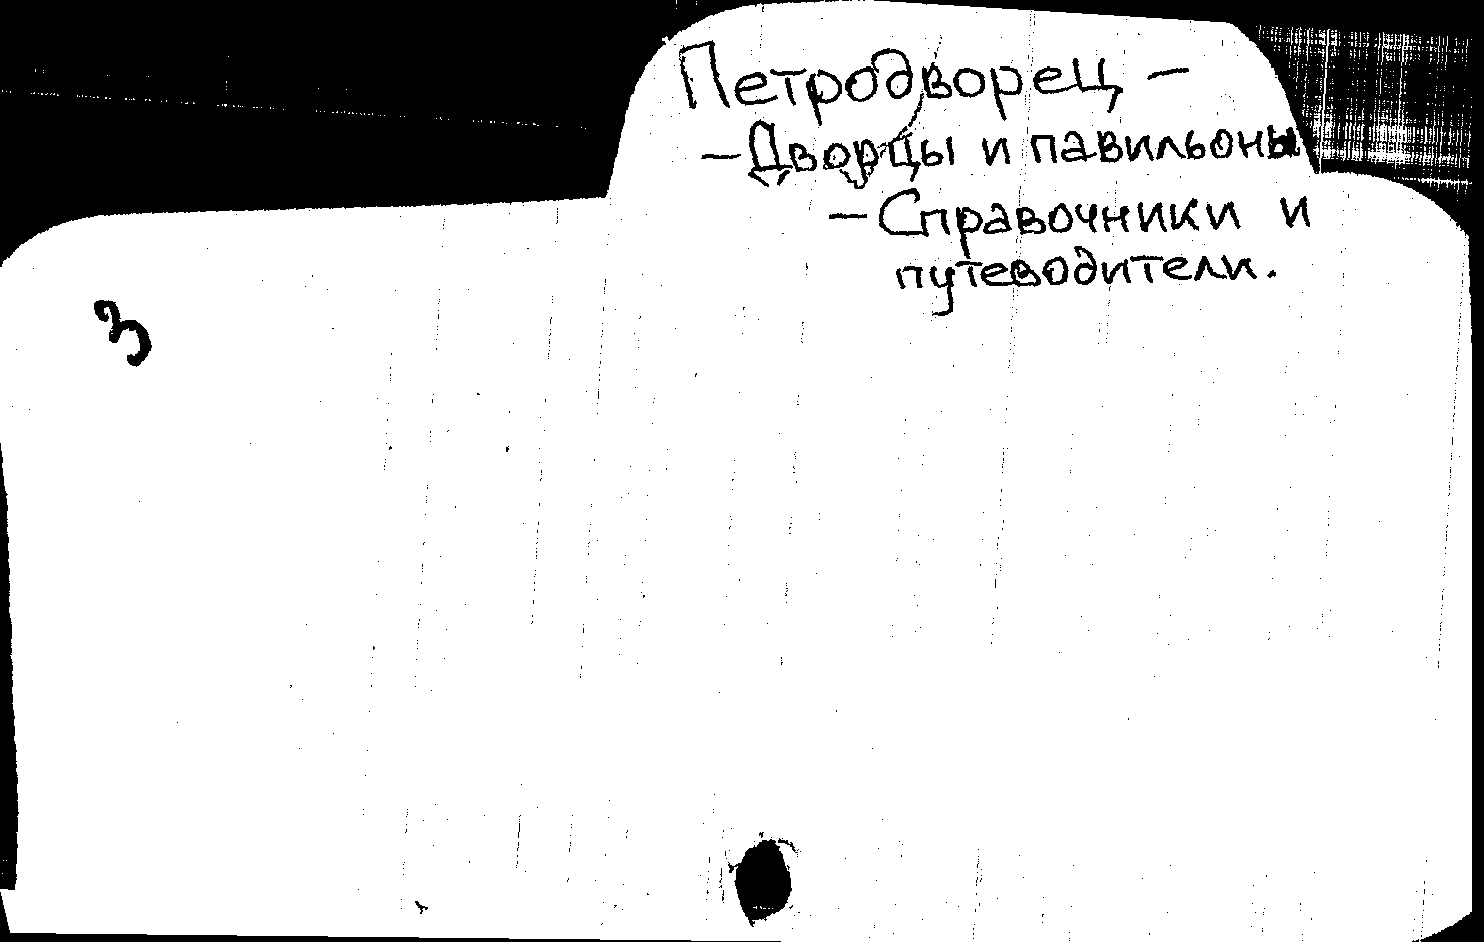 Петродворец –
– Дворцы и павильоны
– Справочники и
путеводители.
3